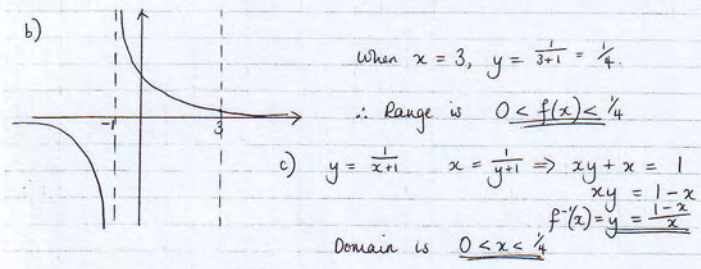 b)
When x = 3, y = 1/(3+1) = 1/4.
∴ Range is 0 < f(x) < 1/4
-1 3
c) y = 1/(x+1) x = 1/(y+1) ⇒ xy + x = 1
xy = 1 - x
f⁻¹(x) = y = (1-x)/x
Domain is 0 < x < 1/4